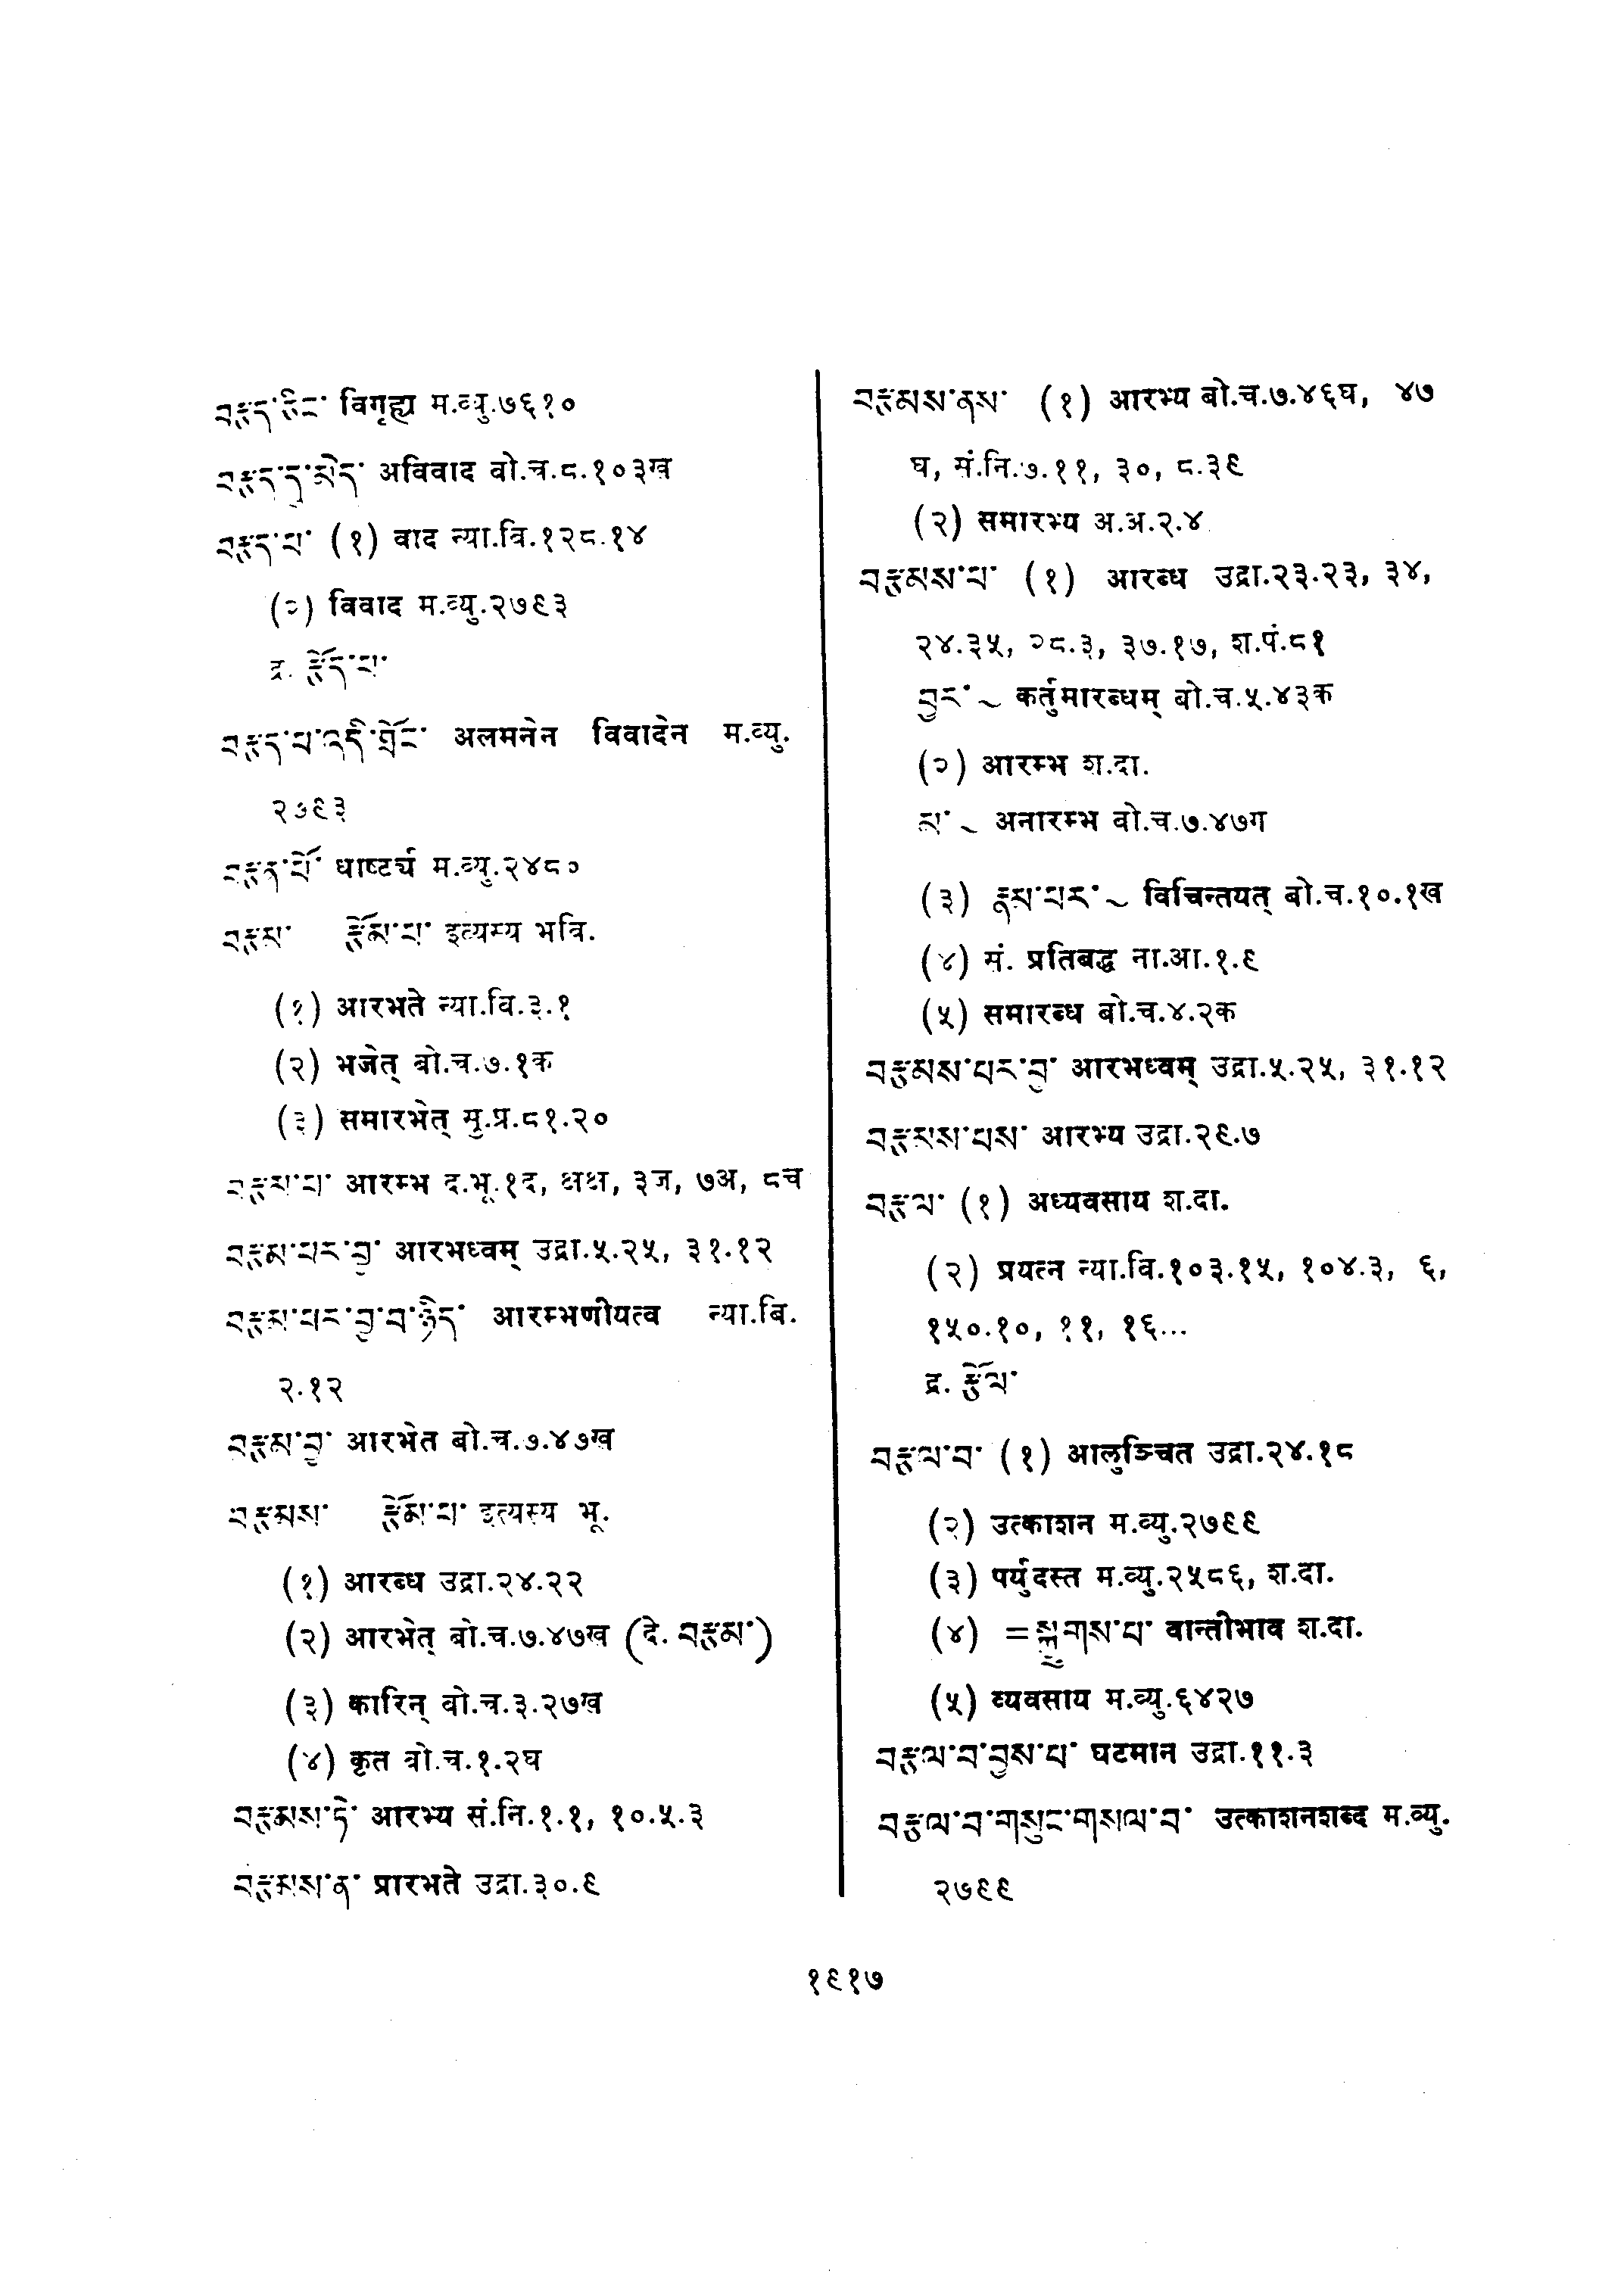 བརྩད་ཅིང་ विगृह्य म.व्यु.७६१०
བརྩད་དུ་མེད་ अविवाद बो.च.८.१०३ख
བརྩད་པ་ (१) वाद न्या.वि.१२८.१४
(२) विवाद म.व्यु.२७९३
द्र. རྩོད་པ་
བརྩད་པ་འདི་གྱོང་ अलमनेन विवादेन म.व्यु.
२७९३
བརྩན་པོ་ धार्ष्ट्य म.व्यु.२४८०
བརྩམ་ རྩོམ་པ་ इत्यस्य भवि.
(१) आरभते न्या.वि.३.१
(२) भजेत् बो.च.७.१क
(३) समारभेत् मू.प्र.८१.२०
བརྩམ་པ་ आरम्भ द.भू.१द, क्षक्ष, ३ज, ७अ, ८च
བརྩམ་པར་བྱ་ आरभध्वम् उद्रा.५.२५, ३१.१२
བརྩམ་པར་བྱ་བ་ཉིད་ आरम्भणीयत्व न्या.बि.
२.१२
བརྩམ་བྱ་ आरभेत बो.च.७.४७ख
བརྩམས་ རྩོམ་པ་ इत्यस्य भू.
(१) आरब्ध उद्रा.२४.२२
(२) आरभेत् बो.च.७.४७ख (दे. བརྩམ་)
(३) कारिन् बो.च.३.२७ख
(४) कृत बो.च.१.२घ
བརྩམས་ཏེ་ आरभ्य सं.नि.१.१, १०.५.३
བརྩམས་ན་ प्रारभते उद्रा.३०.९
བརྩམས་ནས་ (१) आरभ्य बो.च.७.४६घ, ४७
घ, सं.नि.७.११, ३०, ८.३९
(२) समारभ्य अ.अ.२.४
བརྩམས་པ་ (१) आरब्ध उद्रा.२३.२३, ३४,
२४.३५, २८.३, ३७.१७, श.पं.८१
བྱར་ ~ कर्तुमारब्धम् बो.च.५.४३क
(२) आरम्भ श.दा.
མ་ ~ अनारम्भ बो.च.७.४७ग
(३) རྣམ་པར་ ~ विचिन्तयत् बो.च.१०.१ख
(४) सं. प्रतिबद्ध ना.आ.१.९
(५) समारब्ध बो.च.४.२क
བརྩམས་པར་བྱ་ आरभध्वम् उद्रा.५.२५, ३१.१२
བརྩམས་པས་ आरभ्य उद्रा.२९.७
བརྩལ་ (१) अध्यवसाय श.दा.
(२) प्रयत्न न्या.वि.१०३.१५, १०४.३, ६,
१५०.१०, ११, १६...
द्र. རྩོལ་
བརྩལ་བ་ (१) आलुञ्चित उद्रा.२४.१८
(२) उत्काशन म.व्यु.२७९९
(३) पर्युदस्त म.व्यु.२५८६, श.दा.
(४) =སྐྱུགས་པ་ वान्तीभाव श.दा.
(५) व्यवसाय म.व्यु.६४२७
བརྩལ་བ་བྱས་པ་ घटमान उद्रा.११.३
བརྩལ་བ་གསུང་གསལ་བ་ उत्काशनशब्द म.व्यु.
२७९९
१९१७